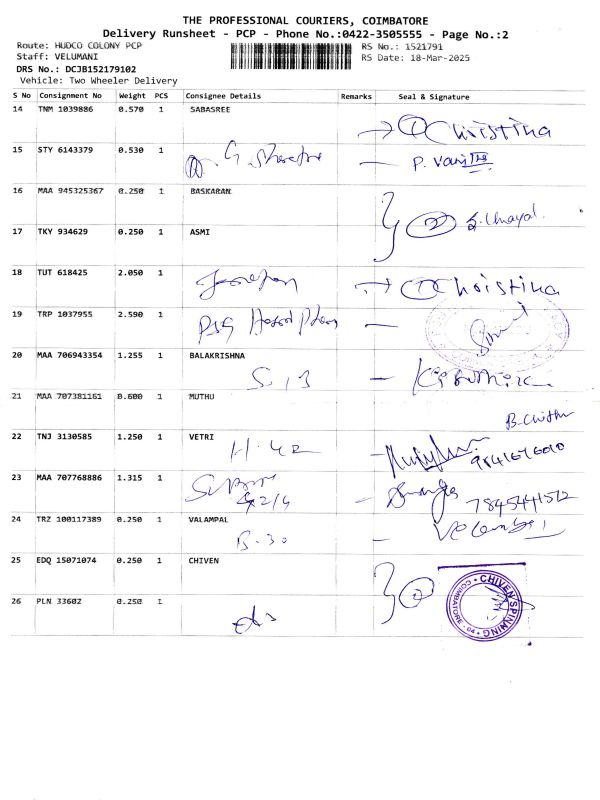 THE PROFESSIONAL COURIERS, COIMBATORE
Delivery Runsheet - PCP - Phone No.:0422-3505555 - Page No.:2
Route: HUDCO COLONY PCP RS No.: 1521791
Staff: VELUMANI RS Date: 18-Mar-2025
DRS No.: DCJB152179102
Vehicle: Two Wheeler Delivery
S No Consignment No Weight PCS Consignee Details Remarks Seal & Signature
14 TNM 1039886 0.570 1 SABASREE
1 Christina
15 STY 6143379 0.530 1
P. Vanitha
16 MAA 945325367 0.250 1 BASKARAN
2
17 TKY 934629 0.250 1 ASMI
18 TUT 618425 2.050 1
1 Christina
19 TRP 1037955 2.590 1
PSG
20 MAA 706943354 1.255 1 BALAKRISHNA
S 13
21 MAA 707381161 0.600 1 MUTHU
22 TNJ 3130585 1.250 1 VETRI
H-42
23 MAA 707768886 1.315 1
7845441512
24 TRZ 100117389 0.250 1 VALAMPAL
B-30
25 EDQ 15071074 0.250 1 CHIVEN
2
CHIVEN SPINNING
COIMBATORE - 04
26 PLN 33602 0.250 1